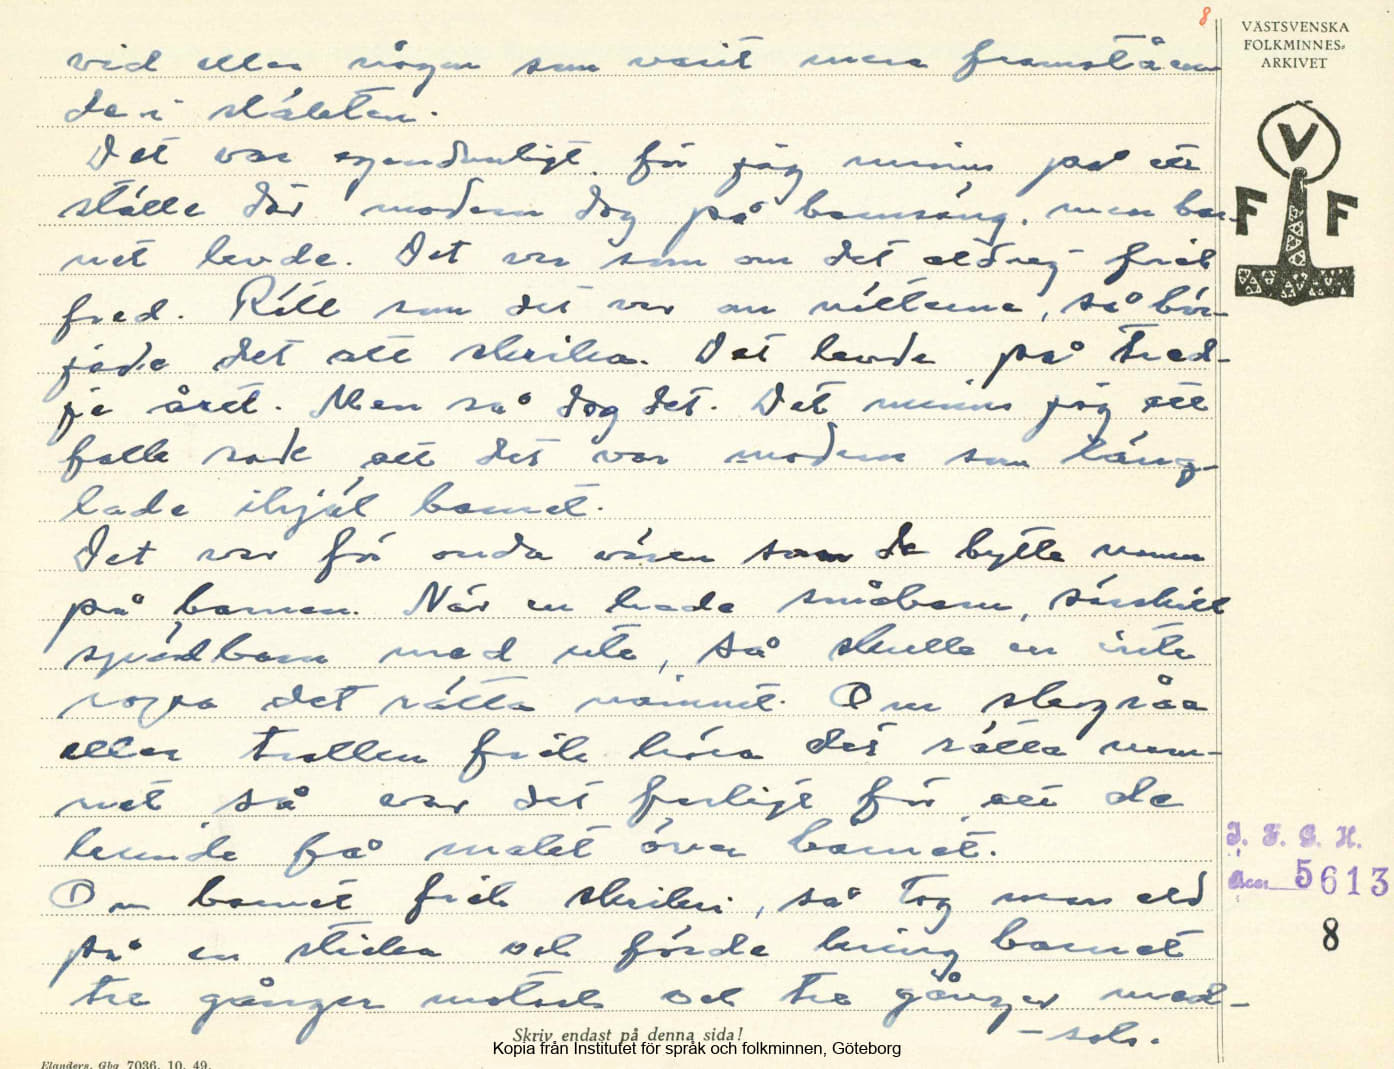 8
VÄSTSVENSKA
FOLKMINNES-
ARKIVET
V
F F
vid eller någon som varit mera framståen
de i släkten.
Det var egendomligt, för jag minns på ett
ställe där modern dog på barnsäng, men bar-
net levde. Det var som om det aldrig fick
fred. Rätt som det var om nätterna, så bör-
jade det att skrika. Det levde på tred-
je året. Men så dog det. Det minns jag att
folk sade att det var modern som läng-
tade ihjäl barnet.
Det var för onda väsen som de bytte namn
på barnen. När en hade småbarn, särskilt
spädbarn med ute, så skulle en inte
ropa det rätta namnet. Om skogsråa
eller trollen fick höra det rätta nam-
net så var det farligt för att de
kunde få makt över barnet.
Om barnet fick skriker, så tog man eld
på en sticka och förde kring barnet
tre gånger motsols och tre gånger med-
-sols.
I. F. G. H.
Acc. 5613
8
Skriv endast på denna sida!
Kopia från Institutet för språk och folkminnen, Göteborg
Elanders, Gbg 7036. 10. 49.